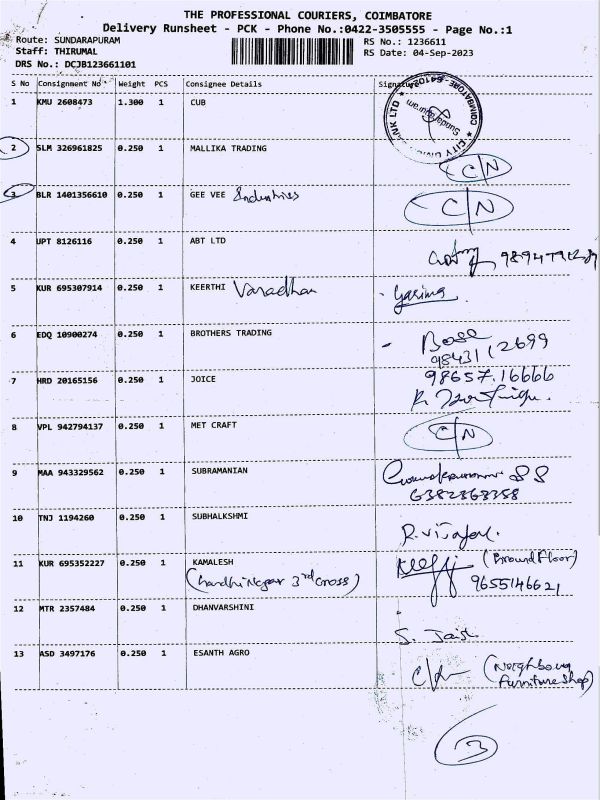 THE PROFESSIONAL COURIERS, COIMBATORE
Delivery Runsheet - PCK - Phone No.:0422-3505555 - Page No.:1
Route: SUNDARAPURAM RS No.: 1236611
Staff: THIRUMAL RS Date: 04-Sep-2023
DRS No.: DCJB123661101
S No Consignment No Weight PCS Consignee Details Signature
1 KMU 2608473 1.300 1 CUB
2 SLM 326961825 0.250 1 MALLIKA TRADING C/N
3 BLR 1401356610 0.250 1 GEE VEE Industries C/N
4 UPT 8126116 0.250 1 ABT LTD
5 KUR 695307914 0.250 1 KEERTHI Varadhan
6 EDQ 10900274 0.250 1 BROTHERS TRADING Base
98431 12699
7 HRD 20165156 0.250 1 JOICE 98657.16666
8 VPL 942794137 0.250 1 MET CRAFT C/N
9 MAA 943329562 0.250 1 SUBRAMANIAN
6382363358
10 TNJ 1194260 0.250 1 SUBHALKSHMI
11 KUR 695352227 0.250 1 KAMALESH (Ground Floor)
(Gandhi Nagar 3rd Cross) 9655146621
12 MTR 2357484 0.250 1 DHANVARSHINI
13 ASD 3497176 0.250 1 ESANTH AGRO
(Neighbour
Furniture Shop)
3